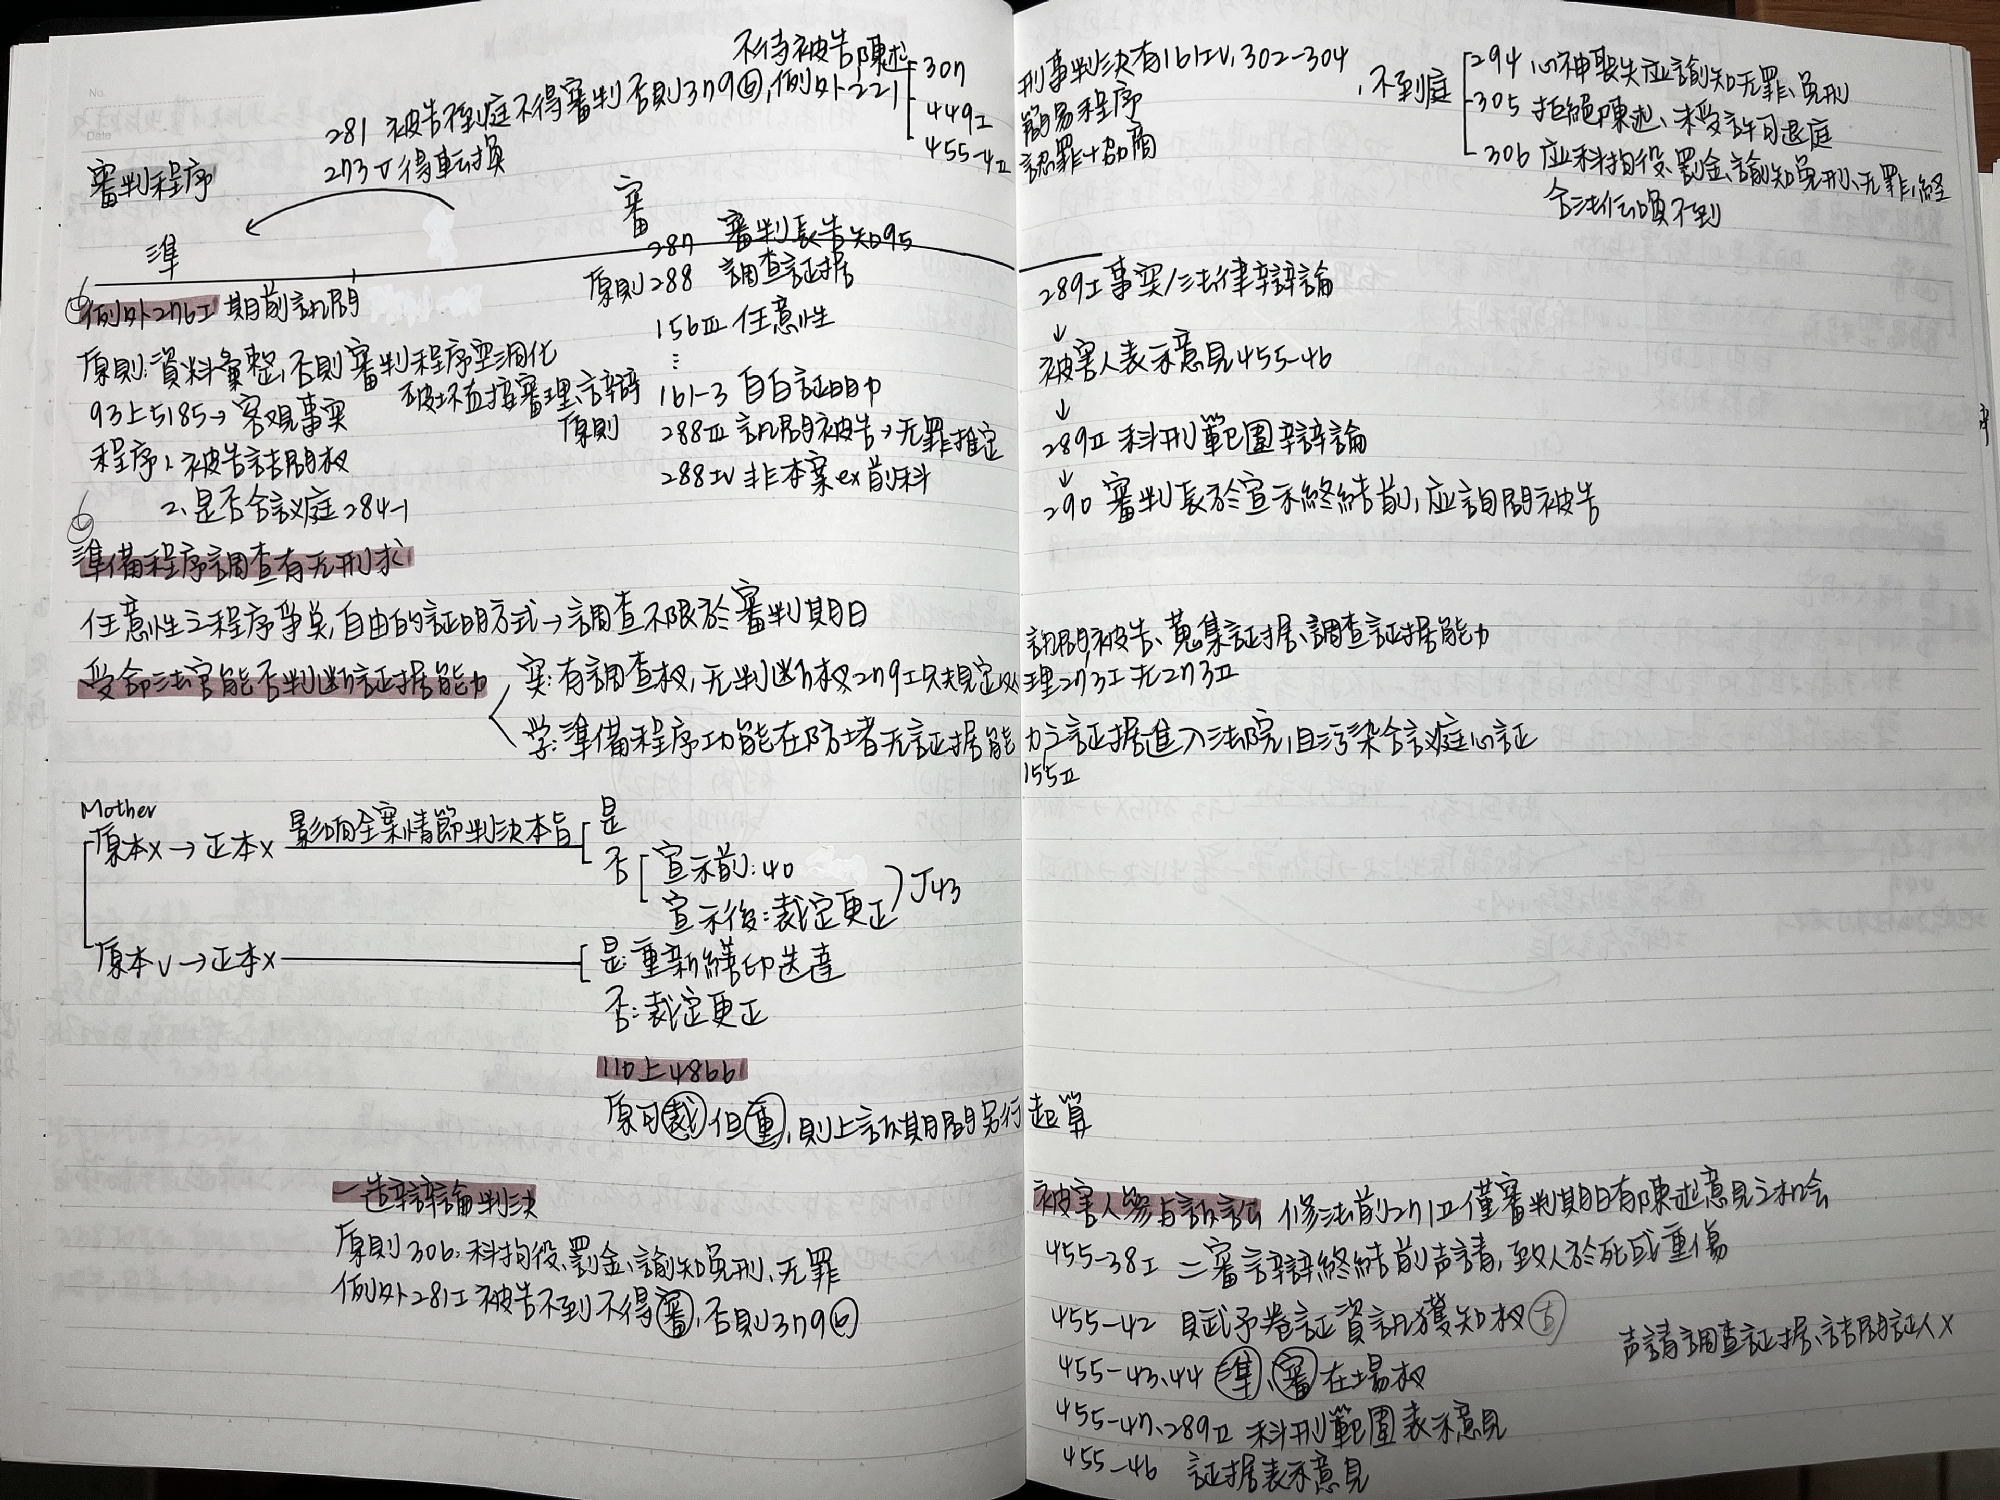 審判程序
281 被告不到庭不得審判 否則379⑥, 例外221
273Ⅴ得轉換
不待被告陳述
307 刑事判決有161Ⅳ, 302-304
449Ⅰ 簡易程序
455-4Ⅱ 認罪+協商
, 不到庭
294 心神喪失应諭知无罪、免刑
305 拒絕陳述、未受許可退庭
306 应科拘役、罰金、諭知免刑、无罪, 經
合法传喚不到
準
審
例外276Ⅰ 期前訊問
原則:資料彙整, 否則審判程序空洞化
破坏直接審理、言辞
原則
93上5185→客观事实
程序1、被告詰問权
2、是否合議庭284-1
287 審判長告知95
原則288 調查証据
156Ⅲ 任意性
⋮
161-3 自白証明力
288Ⅲ 訊問被告→无罪推定
288Ⅳ 非本案ex前科
289Ⅰ事实/法律辯論
↓
被害人表示意見455-46
↓
289Ⅱ 科刑範圍辯論
↓
290 審判長於宣示終結前, 应詢問被告
準備程序調查有无刑求
任意性之程序爭点, 自由的証明方式→調查不限於審判期日
受命法官能否判斷証据能力
实:有調查权, 无判斷权279Ⅰ只規定处理273Ⅰ无273Ⅱ
訊問被告、蒐集証据、調查証据能力
学:準備程序功能在防堵无証据能力之証据進入法院, 且污染合議庭心証
155Ⅱ
Mother
原本x→正本x 影响全案情節判決本旨
是
否 宣示前:40
宣示後:裁定更正 J43
原本v→正本x
是:重新繕印送達
否:裁定更正
110上4866
原可裁但重, 則上訴期間另行起算
一造辯論判決
原則306:科拘役、罰金、諭知免刑、无罪
例外281Ⅰ被告不到不得審, 否則379⑥
被害人參与訴訟 修法前271Ⅱ僅審判期日有陳述意見之机会
455-38Ⅰ 二審言辯終結前声請, 致人於死或重傷
455-42 賦予卷証資訊獲知权
声請調查証据、詰問証人x
455-43、44 準、審在場权
455-47、289Ⅱ 科刑範圍表示意見
455-46 証据表示意見